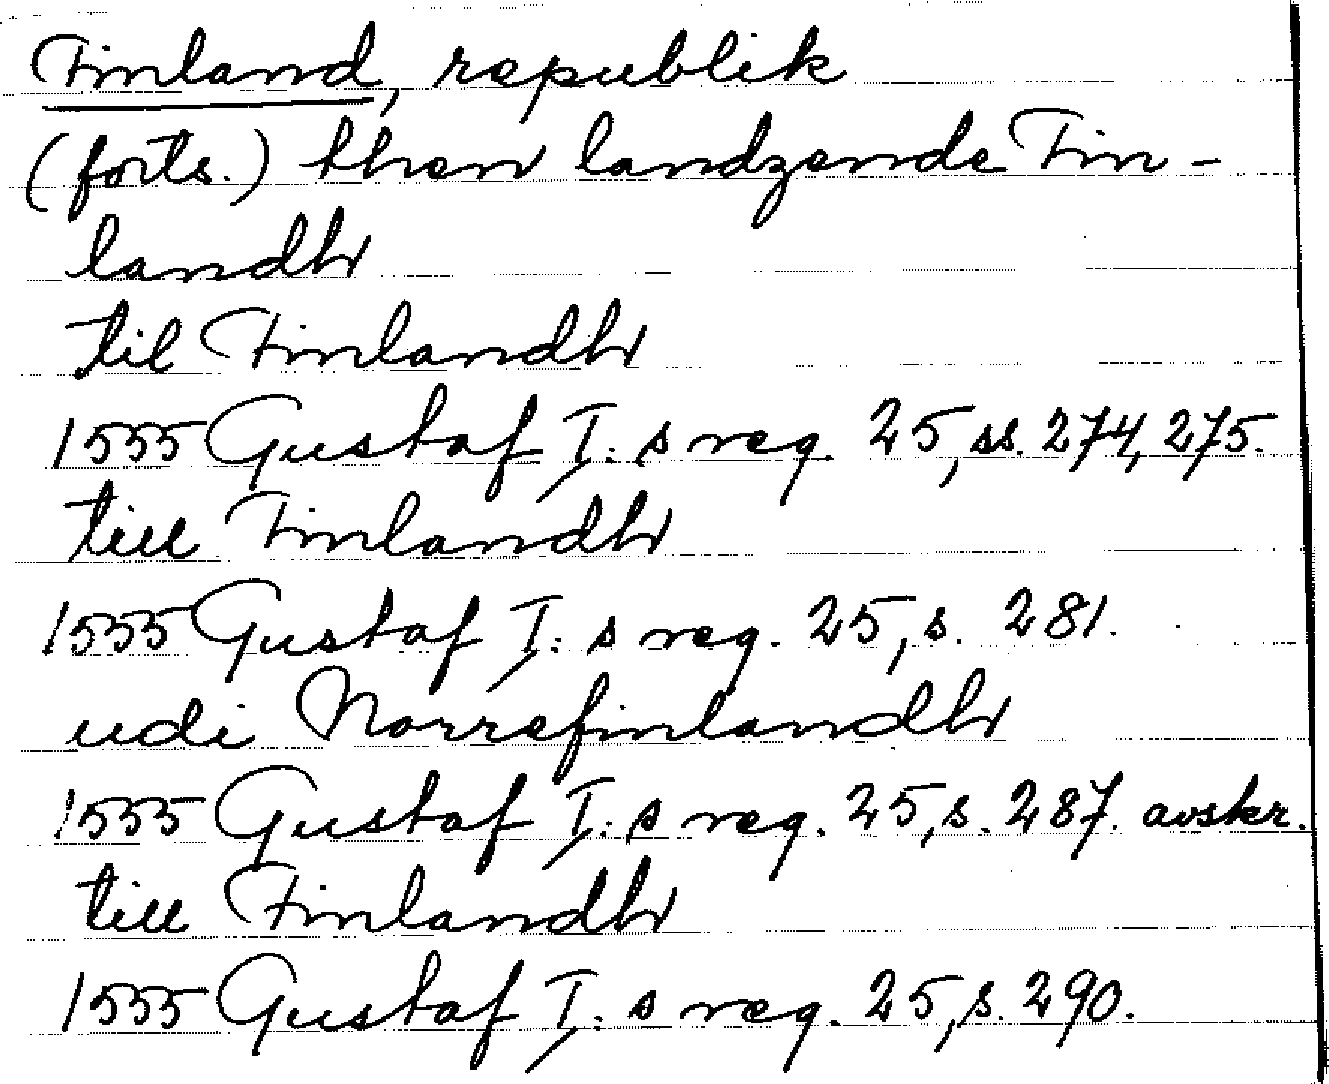 Finland, republik
(forts.) then landzende Fin-
landh
til Finlandh
1555 Gustaf I:s reg. 25, ss. 274, 275.
till Finlandh
1555 Gustaf I:s reg. 25, s. 281.
udi Norrefinlandh
1555 Gustaf I:s reg. 25, s. 287. avskr.
till Finlandh
1555 Gustaf I:s reg. 25, s. 290.